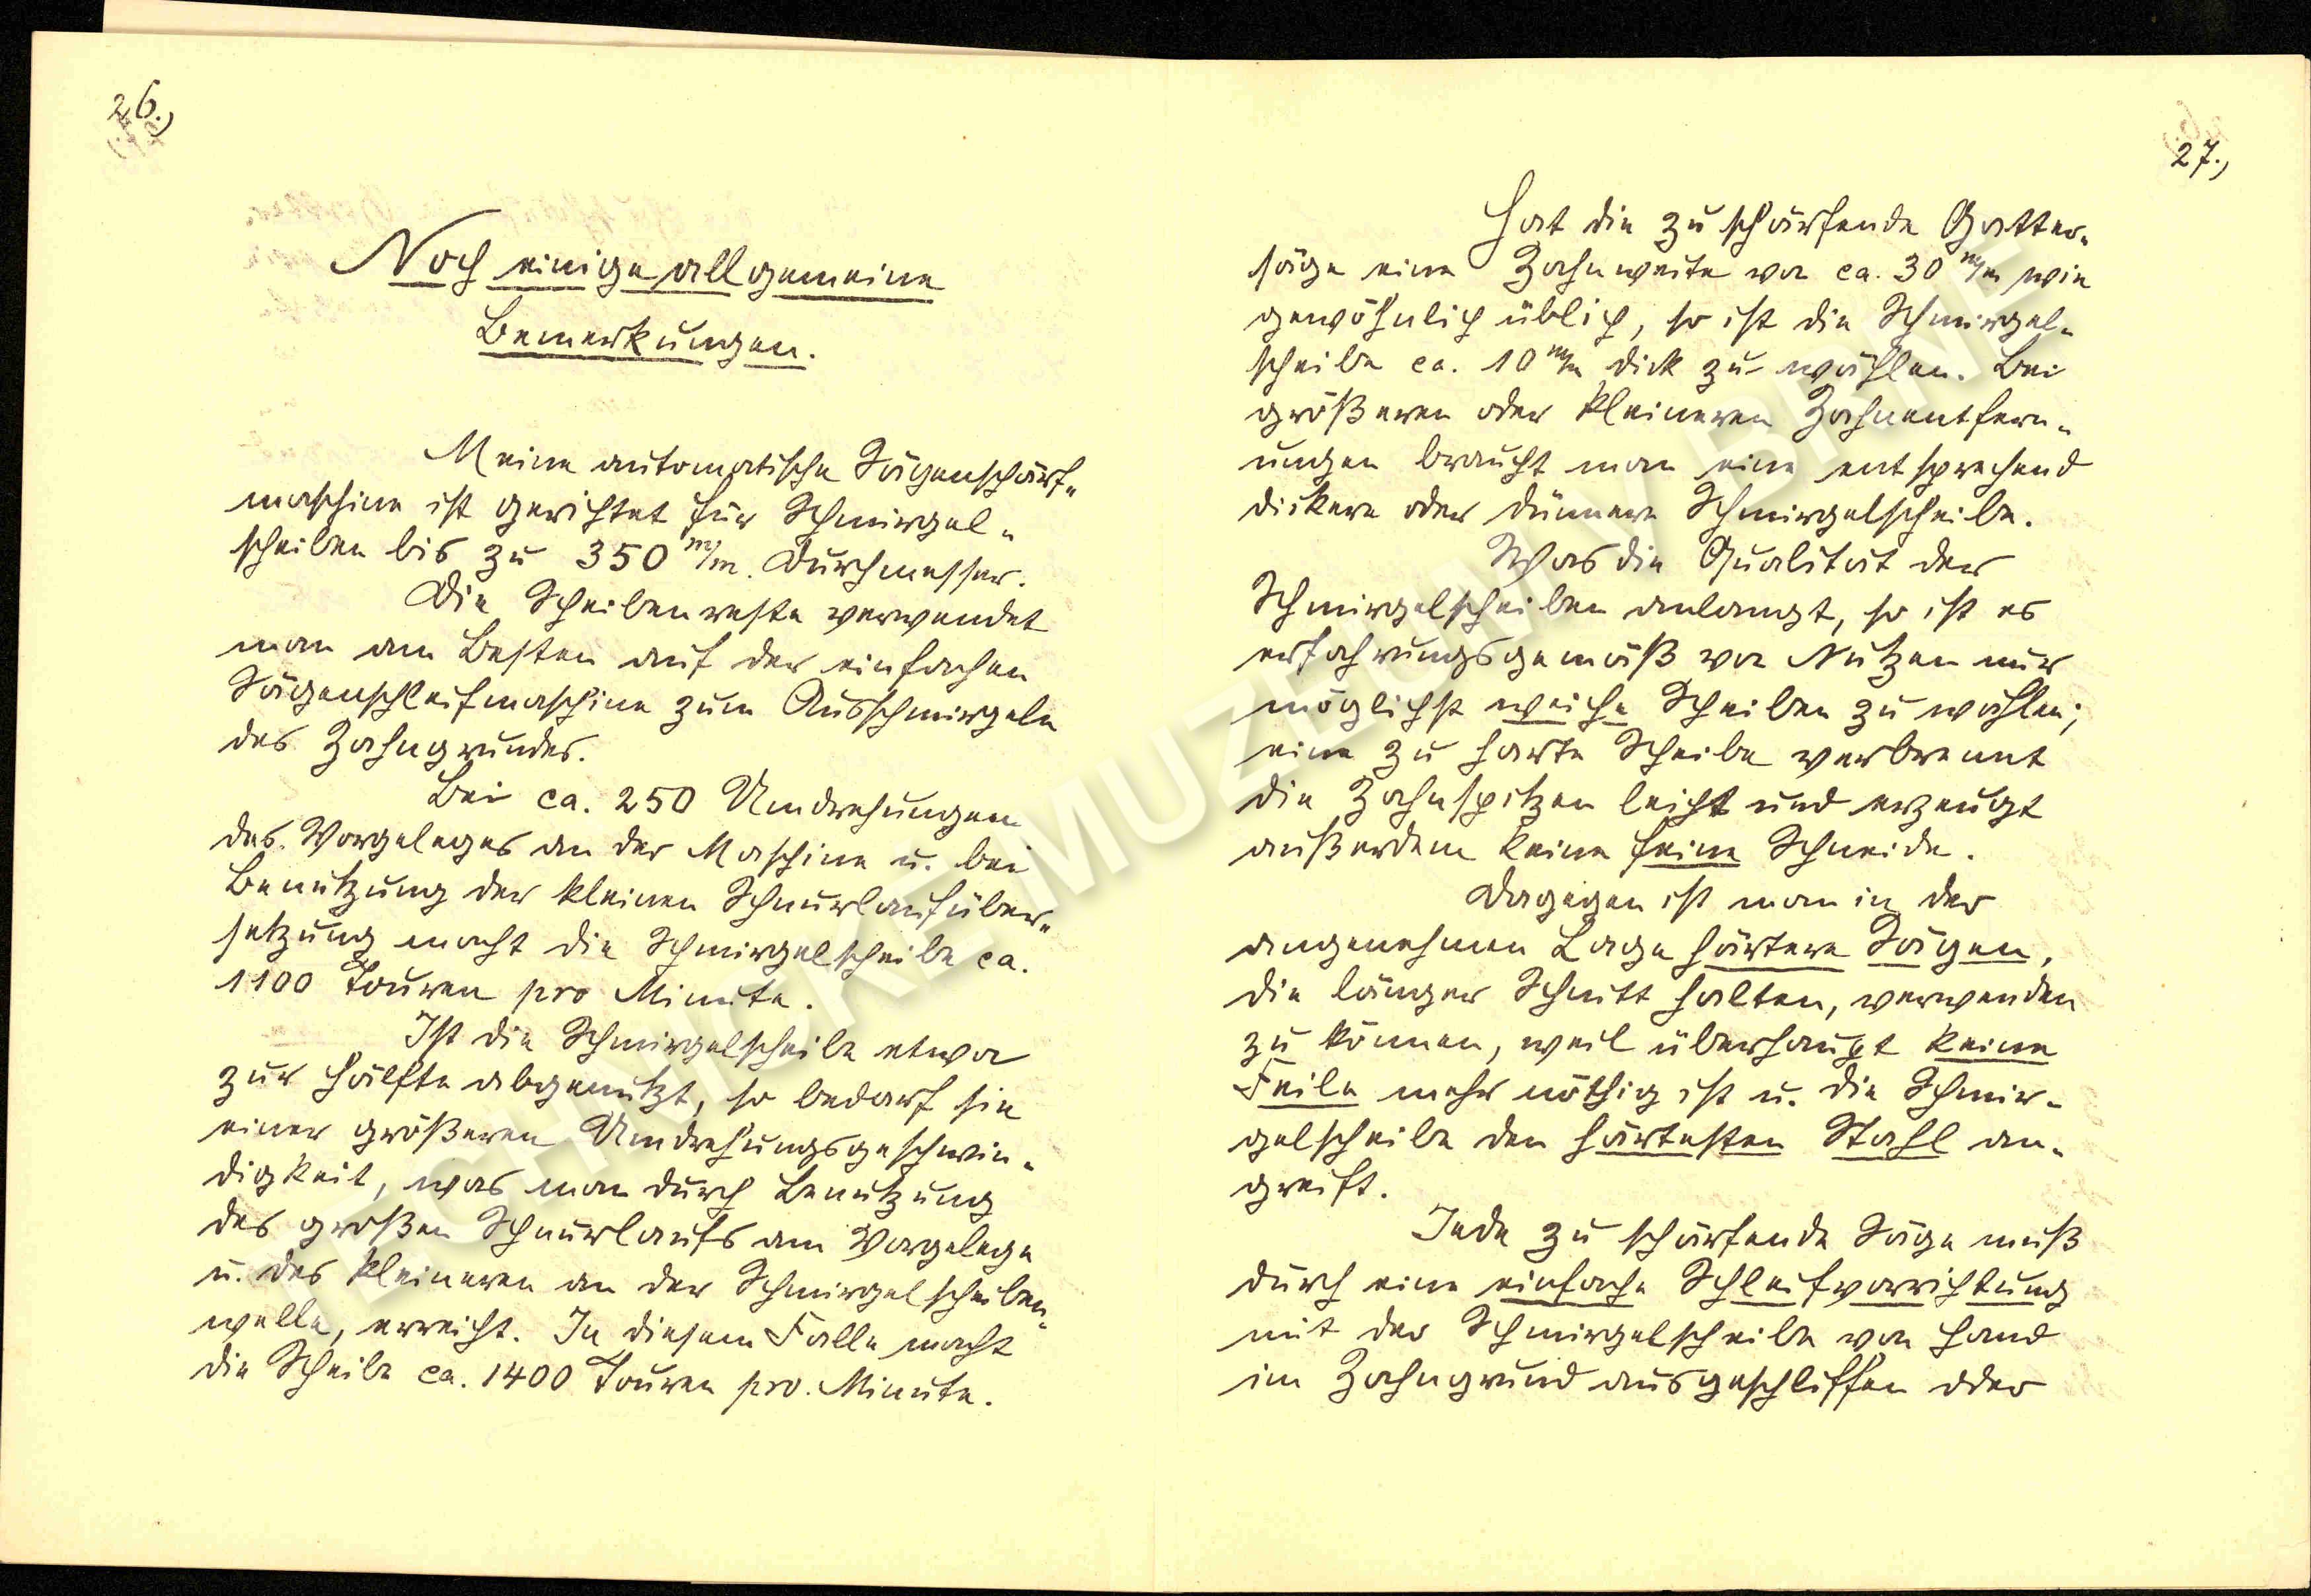 26.)
Noch einige allgemeine
Bemerkungen.
Meine automatische Sägenschärf-
maschine ist gerichtet für Schmirgel-
scheiben bis zu 350 m/m. Durchmesser.
Die Scheibenreste verwendet
man am Besten auf der einfachen
Sägenschleifmaschine zum Ausschmirgeln
des Zahngrundes.
Bei ca. 250 Umdrehungen
des Vorgeleges an der Maschine u. bei
Benutzung der kleinen Schnurlaufüber-
setzung macht die Schmirgelscheibe ca.
1100 Touren pro Minute.
Ist die Schmirgelscheibe etwa
zur Hälfte abgenutzt, so bedarf sie
einer größeren Umdrehungsgeschwin-
digkeit, was man durch Benutzung
des großen Schnurlaufs am Vorgelege
u. des kleineren an der Schmirgelscheiben-
welle, erreicht. In diesem Falle macht
die Scheibe ca. 1400 Touren pro. Minute.
27.)
Hat die zu schärfende Gatter-
säge eine Zahnweite von ca. 30 m/m wie
gewöhnlich üblich, so ist die Schmirgel-
scheibe ca. 10 m/m dick zu wählen. Bei
größeren oder kleineren Zahnentfern-
ungen braucht man eine entsprechend
dickere oder dünnere Schmirgelscheibe.
Was die Qualität der
Schmirgelscheiben anlangt, so ist es
erfahrungsgemäß von Nutzen nur
möglichst weiche Scheiben zu wählen;
eine zu harte Scheibe verbrennt
die Zahnspitzen leicht und erzeugt
außerdem keine feine Schneide.
Dagegen ist man in der
angenehmen Lage härtere Sägen,
die länger Schnitt halten, verwenden
zu können, weil überhaupt keine
Feile mehr nöthig ist u. die Schmir-
gelscheibe den härtesten Stahl an-
greift.
Jede zu schärfende Säge muß
durch eine einfache Schleifvorrichtung
mit der Schmirgelscheibe von Hand
im Zahngrund ausgeschliffen oder
TECHNICKÉ MUZEUM V BRNĚ